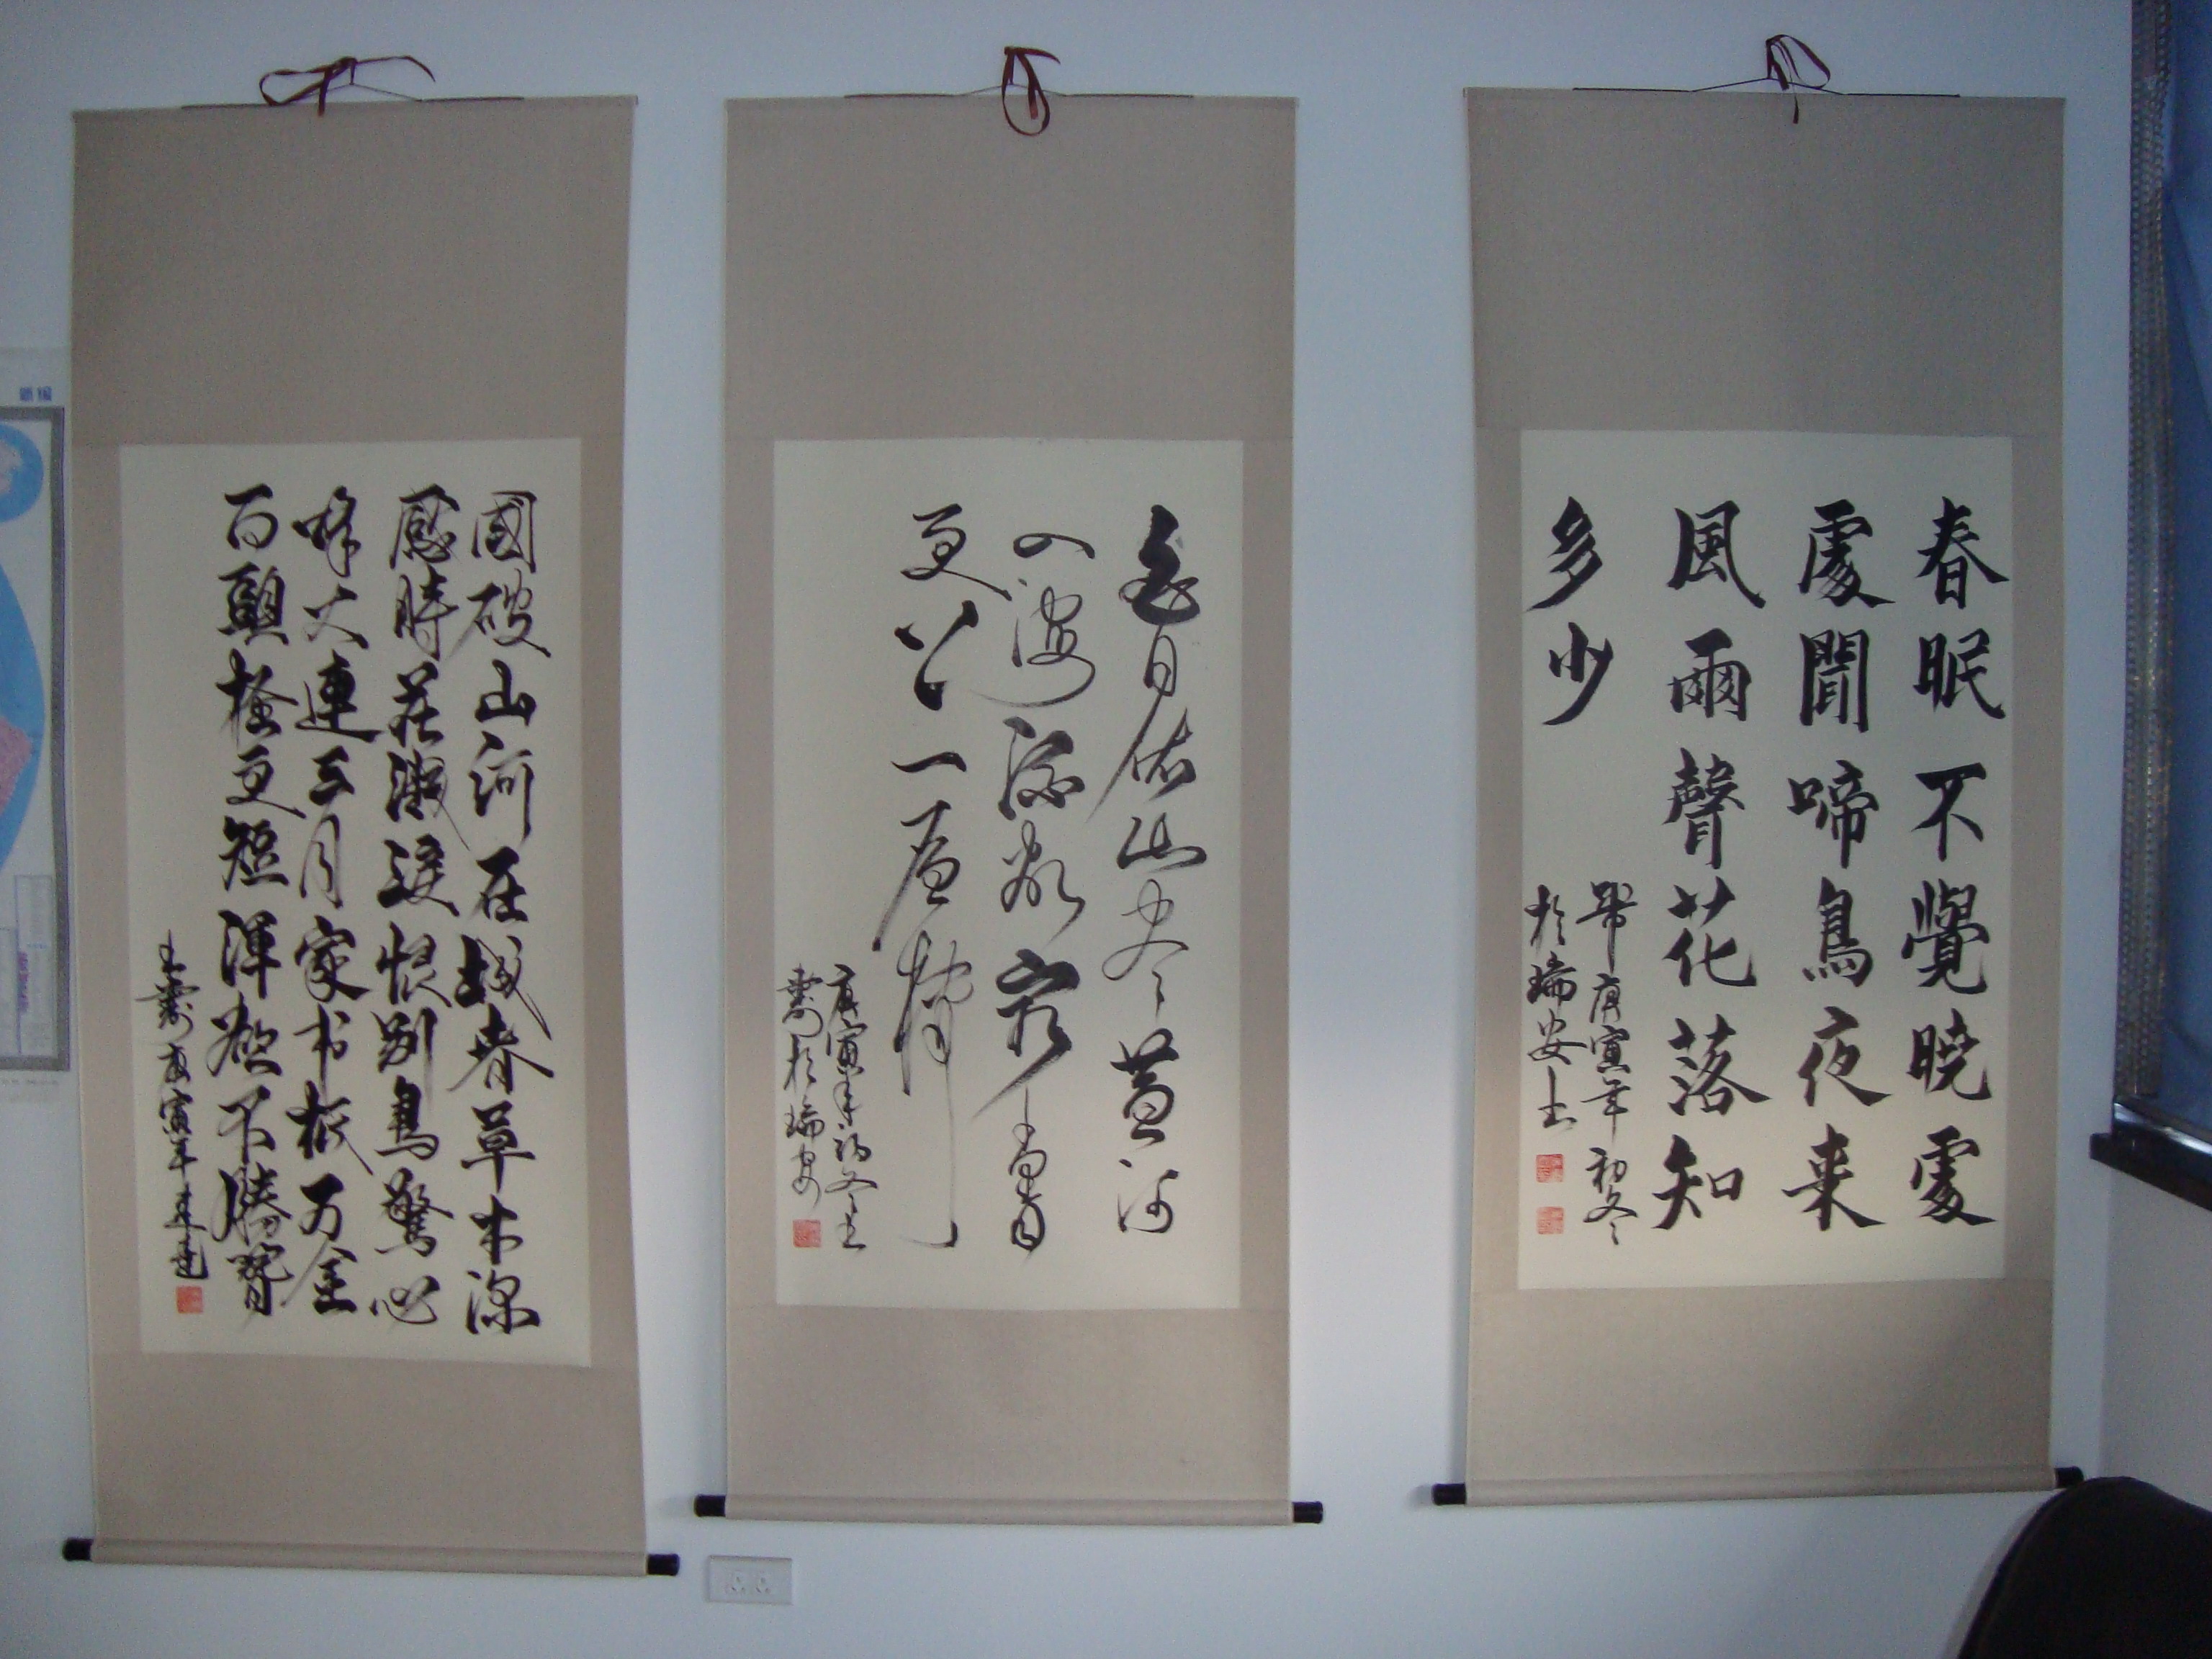 春眠不覺暁處
處聞啼鳥夜来
風雨聲花落知
多少
庚寅年初冬
於瑞安王
白日依山尽黄河
入海流欲窮千里目
更上一層樓
庚寅年初冬王
壽於瑞安
國破山河在城春草木深
感時花濺淚恨别鳥驚心
烽火連三月家书抵万金
白頭搔更短渾欲不勝簪
王壽庚寅年